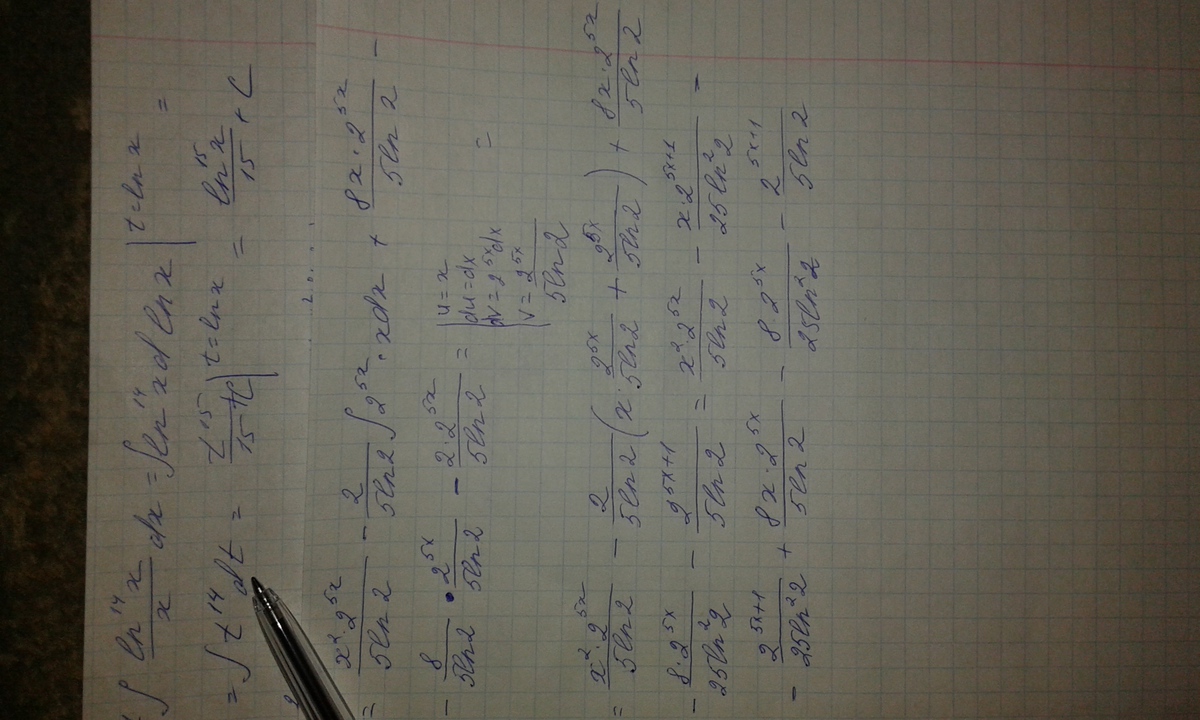 ∫ ln¹⁴x/x dx = ∫ ln¹⁴ x d ln x | t = ln x | =
= ∫ t¹⁴ dt = t¹⁵/15 + C | t = ln x = ln¹⁵x/15 + C
= x²·2⁵ˣ/5ln2 − 2/5ln2 ∫ 2⁵ˣ · x dx + 8x·2⁵ˣ/5ln2 −
− 8/5ln2 · 2⁵ˣ/5ln2 − 2·2⁵ˣ/5ln2 = | u = x
du = dx
dv = 2⁵ˣdx
v = 2⁵ˣ/5ln2 | =
= x²·2⁵ˣ/5ln2 − 2/5ln2 (x · 2⁵ˣ/5ln2 + 2⁵ˣ/5ln2) + 8x·2⁵ˣ/5ln2
− 8·2⁵ˣ/25ln²2 − 2⁵ˣ⁺¹/5ln2 = x²·2⁵ˣ/5ln2 − x·2⁵ˣ⁺¹/25ln²2 −
− 2⁵ˣ⁺¹/25ln²2 + 8x·2⁵ˣ/5ln2 − 8·2⁵ˣ/25ln²2 − 2⁵ˣ⁺¹/5ln2